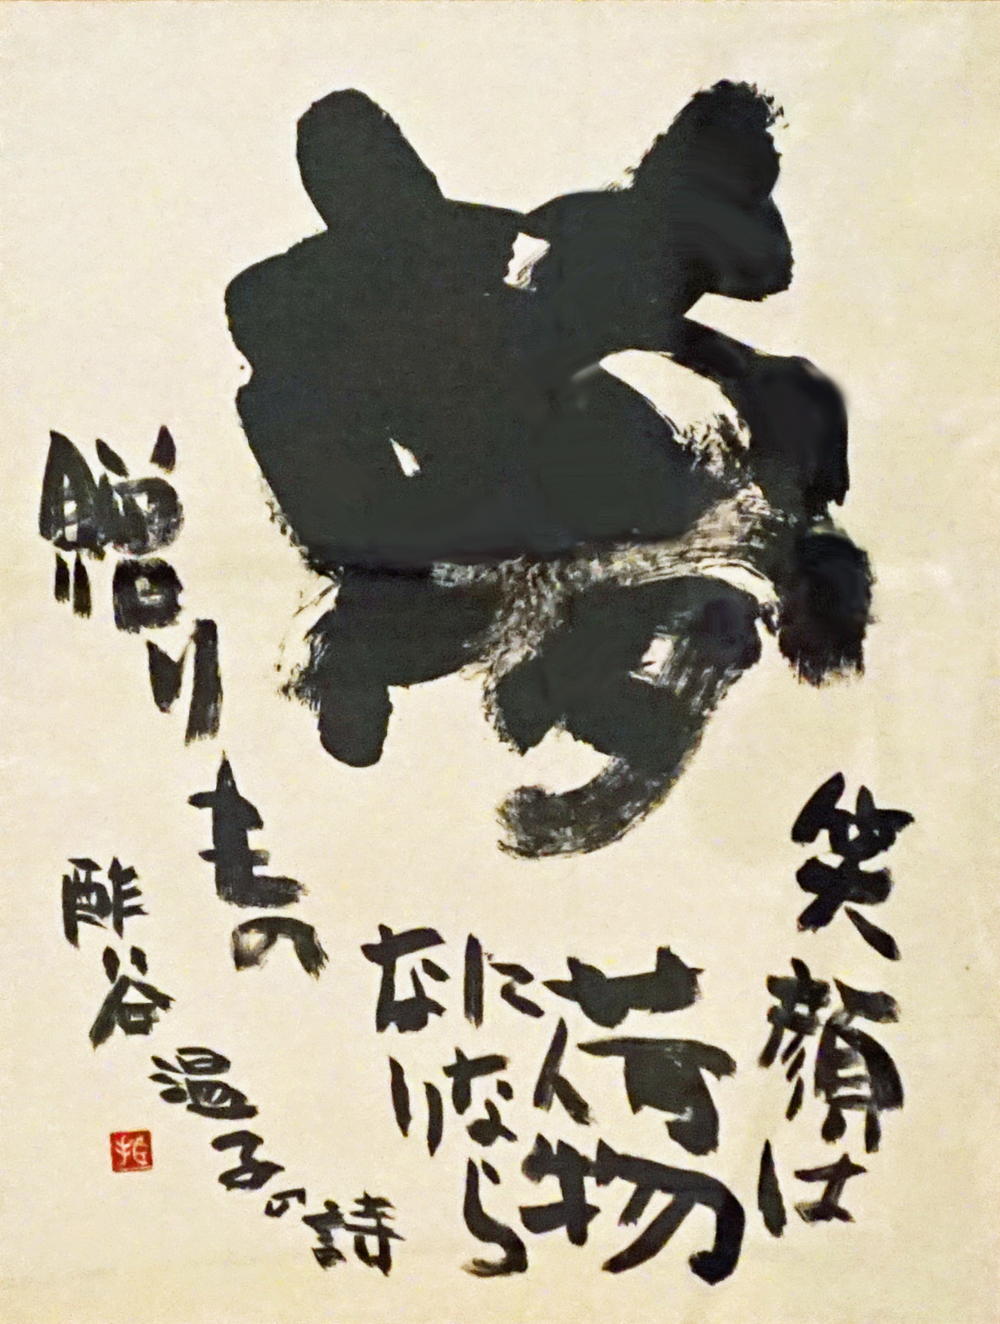 笑顔は
荷物
になら
ない
贈りもの
酢谷温子の詩